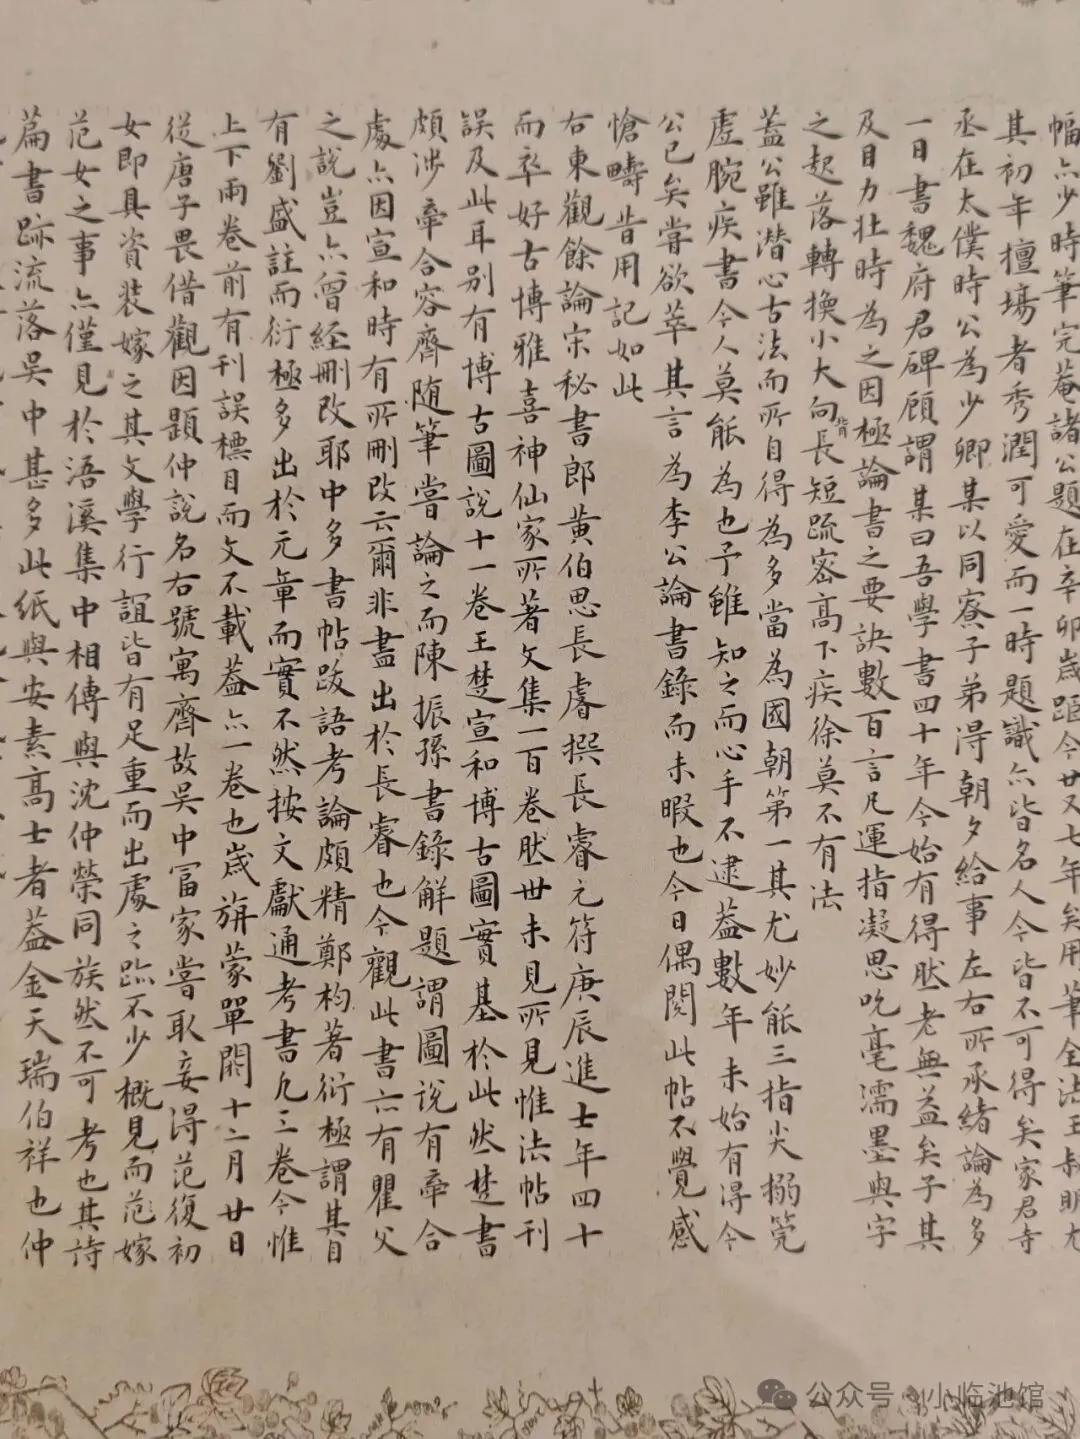 幅亦少時筆完菴諸公題在辛卯歲距今廿又七年矣用筆全法王叔明尤
其初年擅場者秀潤可愛而一時題識亦皆名人今皆不可得矣家君寺
丞在太僕時公為少卿某以同寮子弟得朝夕給事左右所承緒論為多
一日書魏府君碑顧謂某曰吾學書四十年今始有得然老無益矣子其
及目力壯時為之因極論書之要訣數百言凡運指凝思吮毫濡墨與字
之起落轉換小大向背長短疏密高下疾徐莫不有法
蓋公雖潛心古法而所自得為多當為國朝第一其尤妙能三指尖搦筦
虛腕疾書今人莫能為也予雖知之而心手不逮蓋數年未始有得今
公已矣嘗欲萃其言為李公論書錄而未暇也今日偶閱此帖不覺感
愴疇昔用記如此
右東觀餘論宋秘書郎黃伯思長睿撰長睿元符庚辰進士年四十
而卒好古博雅喜神仙家所著文集一百卷然世未見所見惟法帖刊
誤及此耳別有博古圖說十一卷王楚宣和博古圖實基於此然楚書
頗涉牽合容齊隨筆嘗論之而陳振孫書錄解題謂圖說有牽合
處亦因宣和時有所刪改云爾非盡出於長睿也今觀此書亦有瞿父
之說豈亦曾經刪改耶中多書帖跋語考論頗精鄭杓著衍極謂其自
有劉盛註而衍極多出於元章而實不然按文獻通考書凡三卷今惟
上下兩卷前有刊誤標目而文不載蓋亦一卷也歲旃蒙單閼十二月廿日
從唐子畏借觀因題仲說名右號寓齊故吳中冨家嘗取妾得范復初
女即具資裝嫁之其文學行誼皆有足重而出處之跡不少概見而范嫁
范女之事亦僅見於浯溪集中相傳與沈仲榮同族然不可考也其詩
篇書跡流落吳中甚多此紙與安素高士者蓋金天瑞伯祥也仲
公众号 · 小临池馆